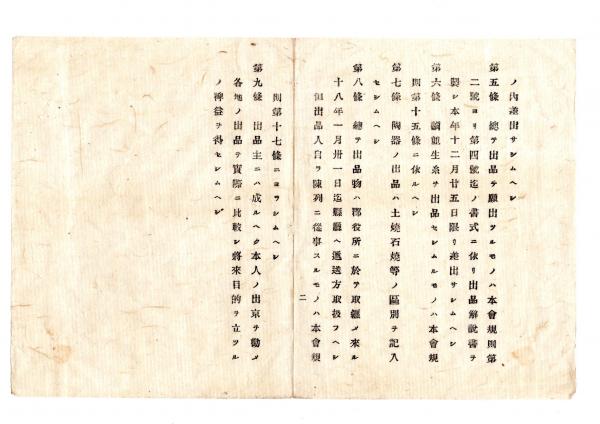 ノ內差出サシムヘシ
第五條　總テ出品ヲ願出ツルモノハ本會規則第
二號ヨリ第四號迄ノ書式ニ依リ出品解說書ヲ
製シ本年十二月廿五日限リ差出サシムヘシ
第六條　繭蠶生糸ヲ出品セシムルモノハ本會規
則第十五條ニ依ルヘシ
第七條　陶器ノ出品ハ土燒石燒等ノ區別ヲ記入
セシムヘシ
第八條　總テ出品物ハ郡役所ニ於テ取纒メ來ル
十八年一月卅一日迄縣廳ヘ遞送方取扱フヘシ
但出品人自ラ陳列ニ從事スルモノハ本會規
二
則第十七條ニヨラシムヘシ
第九條　出品主ニハ成ルヘク本人ノ出京ヲ勸メ
各地ノ出品ヲ實際ニ比較シ將來目的ヲ立ツル
ノ裨益ヲ得セシムヘシ